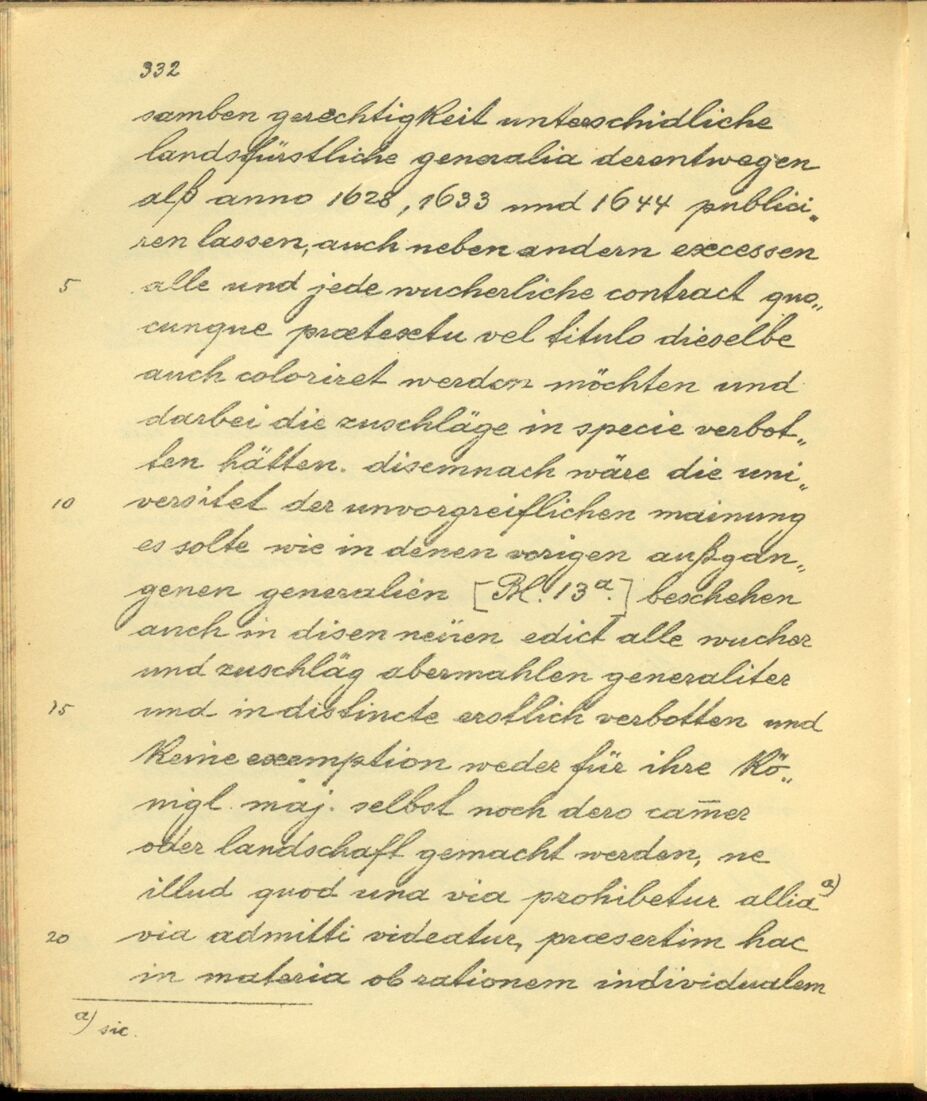 332
samben gerechtigkeit unterschidliche
landsfürstliche generalia derentwegen
alß anno 1628, 1633 und 1644 publici„
ren lassen, auch neben andern excessen
5 alle und jede wucherliche contract quo„
cunque prætextu vel titulo dieselbe
auch coloriret werden möchten und
darbei die zuschläge in specie verbot„
ten hätten. disemnach wäre die uni„
10 versitet der unvorgreiflichen mainung
es solte wie in denen vorigen außgan„
genen generalien [Bl. 13a.] beschehen
auch in disen neüen edict alle wucher
und zuschläg abermahlen generaliter
15 und indistincte erstlich verbotten und
keine exemption weder für ihre Kö„
nigl. maj. selbst noch dero cam̅er
oder landschaft gemacht werden, ne
illud quod una via prohibetur allia a)
20 via admitti videatur, præsertim hac
in materia ob rationem individualem
a) sic.